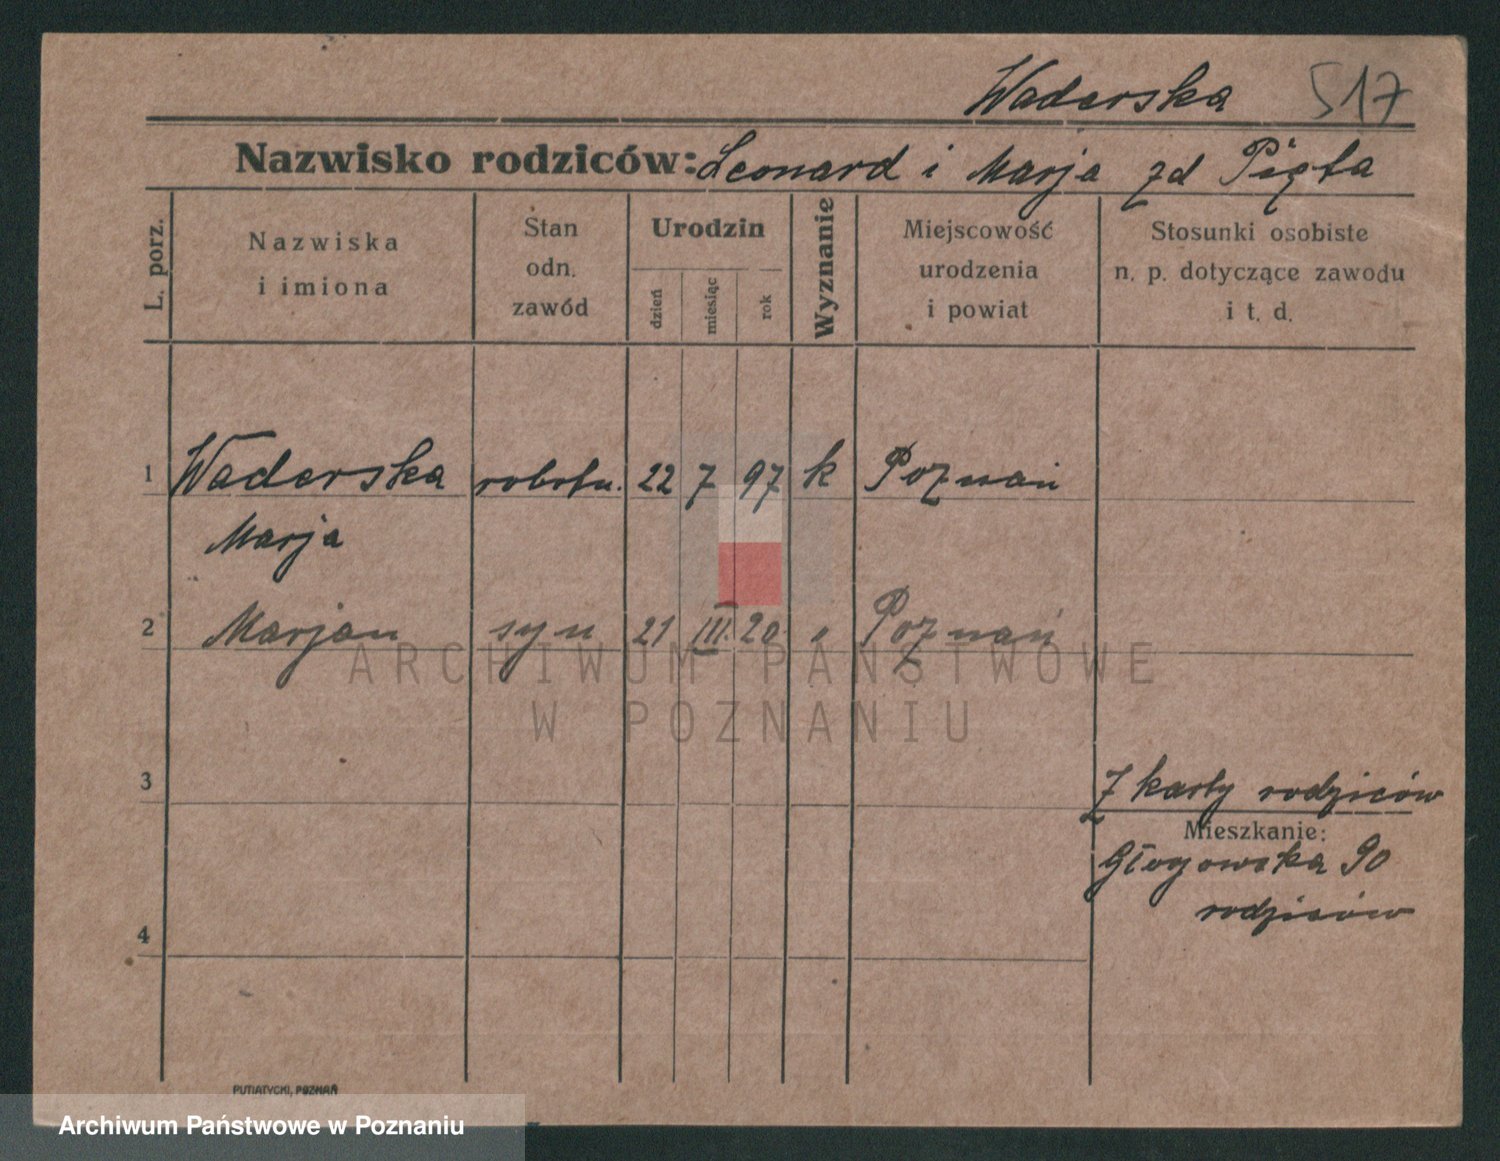 Waderska 517
Nazwisko rodziców: Leonard i Marja zd Pięta
L. porz.
Nazwiska
i imiona
Stan
odn.
zawód
Urodzin
dzień
miesiąc
rok
Wyznanie
Miejscowość
urodzenia
i powiat
Stosunki osobiste
n. p. dotyczące zawodu
i t. d.
1 Waderska robotn. 22 7 97 k Poznań
Marja
2 Marjan syn 21 III. 20 " Poznań
ARCHIWUM PAŃSTWOWE
W POZNANIU
3 Z karty rodziców
Mieszkanie:
Głogowska 90
rodziców
4
PUTIATYCKI, POZNAŃ
Archiwum Państwowe w Poznaniu